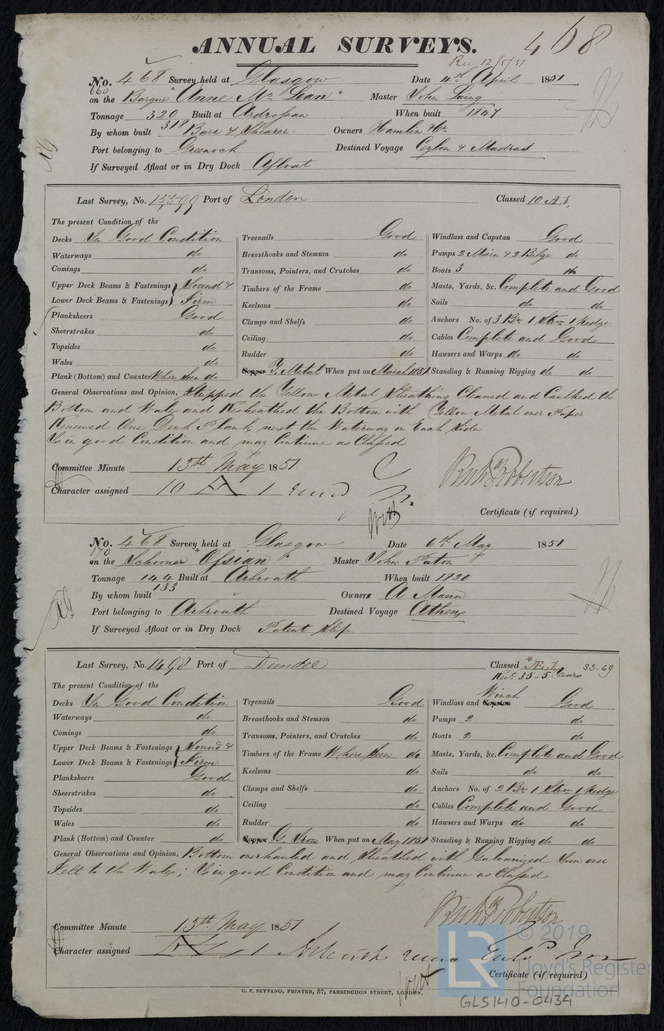 ANNUAL SURVEYS. 468
Rec 12/5/51
No. 468 Survey held at Glasgow Date 4th April 1851
660
on the Barque "Anne McLean" Master John Laing
Tonnage 320 Built at Ardrossan When built 1847
318
By whom built Barr & Shearer Owners Hamlin &Co
Port belonging to Greenock Destined Voyage Ceylon & Madras
If Surveyed Afloat or in Dry Dock Afloat
Last Survey, No. 13,599 Port of London Classed 10 A.1,
The present Condition of the
Decks In Good Condition Treenails Good Windlass and Capstan Good
Waterways do Breasthooks and Stemson do Pumps 2 Main & 2 Bilge do
Comings do Transoms, Pointers, and Crutches do Boats 3 do
Upper Deck Beams & Fastenings Sound & Timbers of the Frame do Masts, Yards, &c. Complete and Good
Lower Deck Beams & Fastenings Firm Keelsons do Sails do do
Planksheers Good Clamps and Shelfs do Anchors No. of 3 Br 1 Strm 1 Kedge
Sheerstrakes do Ceiling do Cables Complete and Good
Topsides do Rudder do Hawsers and Warps do do
Wales do Copper Y. Metal When put on March 1851 Standing & Running Rigging do do
Plank (Bottom) and Counter Where seen do
General Observations and Opinion, Stripped the Yellow Metal Sheathing Cleaned and Caulked the
Bottom and Wales and Resheathed the Bottom with Yellow Metal over Paper
Renewed One Deck Plank next the Waterway on Each Side
Is in good Condition and may Continue as Classed
Committee Minute 13th May 1851
Character assigned 10 A 1
Certificate (if required)
No. 468 Survey held at Glasgow Date 6th May 1851
170
on the Schooner "Ossian" Master John Paton
Tonnage 144 Built at Arbroath When built 1820
133
By whom built Owners A Mann
Port belonging to Arbroath Destined Voyage Athens
If Surveyed Afloat or in Dry Dock Patent Slip
Last Survey, No. 1498 Port of Dundee Classed 35-5 Years 33.69
The present Condition of the
Decks In Good Condition Treenails Good Windlass and Capstan Winch Good
Waterways do Breasthooks and Stemson do Pumps 2 do
Comings do Transoms, Pointers, and Crutches do Boats 2 do
Upper Deck Beams & Fastenings Sound & Timbers of the Frame Where Seen do Masts, Yards, &c. Complete and Good
Lower Deck Beams & Fastenings Firm Keelsons do Sails do do
Planksheers Good Clamps and Shelfs do Anchors No. of 2 Br 1 Strm 1 Kedge
Sheerstrakes do Ceiling do Cables Complete and Good
Topsides do Rudder do Hawsers and Warps do do
Wales do Copper G. Iron When put on May 1851 Standing & Running Rigging do do
Plank (Bottom) and Counter do
General Observations and Opinion, Bottom overhauled and Sheathed with Galvanized Iron over
Felt to the Wales; Is in good Condition and may Continue as Classed
Committee Minute 13th May 1851
Character assigned
Certificate (if required)
G. F. SEYFANG, PRINTER, 57, FARRINGDON STREET, LONDON.
LR © 2019
Lloyd's Register
Foundation
GLS140-0434